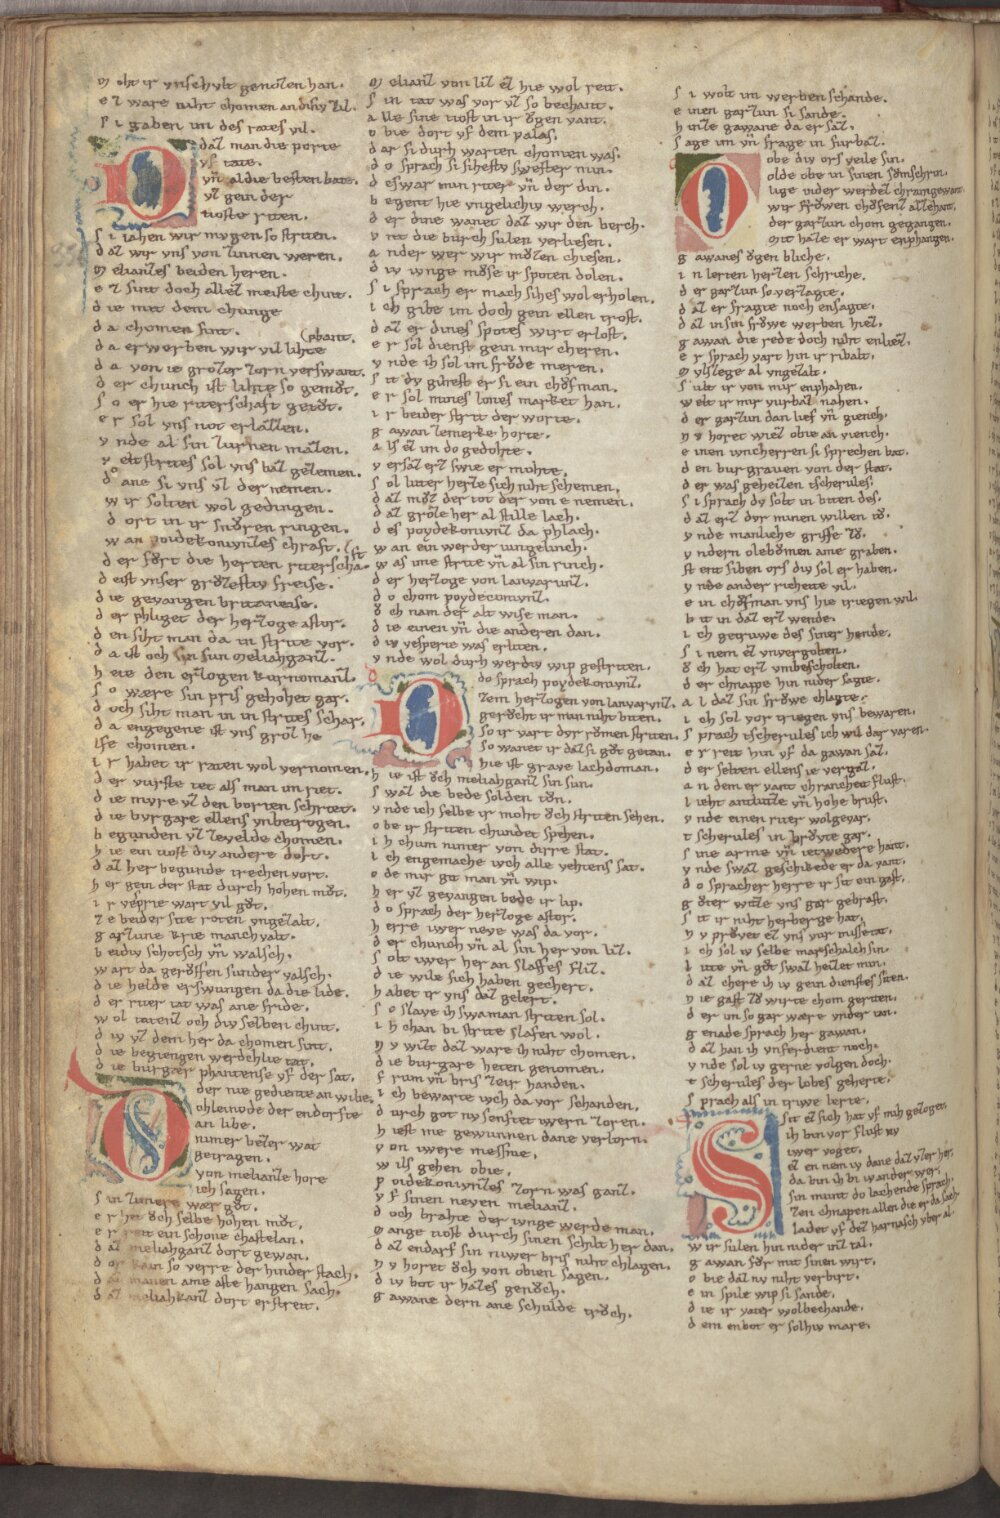 e z ware niht chomen an disiv zil.
s i gaben im des rates vil.
D az man die porte
vf tæte.
vñ al die besten bæte.
vz gein der
tioste riten.
s i iahen wir mvgen so striten.
d az wir vns von zinnen weren.
m elianzes beiden heren.
e z sint doch allez meiste chint.
d ie mit dem chunge
d a chomen sint.
d a erwerben wir vil lihte phant.
d a von ie grozer zorn verswant.
d er chunch ist lihte so gemŏt.
s o er hie riterschaft getŏt.
e r sol vns not erlazzen.
v nde al sin zurnen mazen.
w ir solten wol gedingen.
d ort in ir snŭren ringen.
w an poidekonvnzes chraft.
d er fŏrt die herten riterschaft
d eist vnser grŏzestiv freise.
d ie gevangen britaneise.
d er phliget der herzoge astor.
d en siht man da in strite vor.
d a ist och sin sun meliahganz.
h ete den erzogen kurnomanz.
s o wære sin pris gehohet gar.
d och siht man in in strites schar.
d a engegene ist vns groz he
lfe chomen.
i r habet ir raten wol vernomen.
d er vurste tet als man im riet.
d ie mvre vz den porten schriet.
d ie bvrgare ellens vnbetrogen.
b egunden vz ze velde chomen.
h ie ein tiost div andere dort.
d az her begunde trechen vort.
h er gein der stat durch hohen mŏt.
i r vesprie wart vil gŏt.
z e beider site roten vngezalt.
g arzune krie manchvalt.
b eidiv schotsch vñ walsch.
w art da gerŏffen sunder valsch.
d ie helde erswungen da die lide.
d er riter tat was ane fride.
w ol tatenz och div selben chint.
d iv vz dem her da chomen sint.
d ie begiengen werdechlie tat.
d ie burgær phantense vf der sat.
D er nie gediente an wibe.
chleinode der endorfte
an libe.
nimer bezer wat
getragen.
von melianze hore
ich sagen.
s in zimiere wær gŏt.
e r het ŏch selbe hohen mŏt.
e r reit ein schone chastelan.
d az meliahganz dort gewan.
d az manen ame aste hangen sach.
d az meliahkanz dort erstreit.
m elianz von liz ez hie wol reit.
s in tat was vor vz so bechant.
a lle sine tiost in ir ŏgen vant.
o bie dort vf dem palas.
d ar si durh warten chomen was.
d o sprach si sihestv swester min.
d eswar min riter vñ der din.
b egent hie vngelichiv werch.
d er dine wænet daz wir den berch.
v nt die burch sulen verliesen.
a nder wer wir mŏzen chiesen.
d iv ivnge mŏse ir spoten dolen.
s i sprach er mach sihes wol erholen.
i ch gibe im doch gein ellen trost.
d az er dines spotes wirt erlost.
e r sol dienst gein mir cheren.
v nde ih sol im frŏde meren.
s it dv gihest er si ein chŏfman.
e r sol mines lones market han.
i r beider strit der worte.
g awan zemerke horte.
a ls ez im do gedohte.
v ersaz erz swie er mohte.
s ol luter herze sich niht schemen.
d az mŏz der tot der von e nemen.
d az groze her al stille lach.
d es poydekonvnz da phlach.
w an ein werder iungelinch.
w as ime strite vñ al sin rinch.
d er herzoge von lanvarunz.
d o chom poydecunvnz.
ŏ ch nam der alt wise man.
d ie einen vñ die anderen dan.
d iv vesperie was erliten.
v nde wol durh werdiv wip gestriten.
D o sprach poydekonvnz.
zem herzogen von lanvarvnz.
gerŏcht ir min niht biten.
so ir vart dvr rŏmen striten.
so wænet ir daz si gŏt getan.
hie ist grave lachdoman.
h ie ist ŏch meliahganz sin sun.
s waz die bede solden tŏn.
v nde ich selbe ir moht ŏch striten sehen.
o be ir striten chundet spehen.
i h chum nimer von dirre stat.
i ch engemache ivch alle vehtens sat.
o de mir git man vñ wip.
h er vz gevangen bede ir lip.
d o sprach der herzoge astor.
h erre iwer neve was da vor.
d er chunch vñ al sin her von liz.
s olt iwer her an slaffes fliz.
d ie wile sich haben gechert.
h abet ir vns daz gelert.
s o slave ih swa man striten sol.
i h chan bi strite slafen wol.
n v wizt daz ware ih niht chomen.
d ie burgare heten genomen.
f rum vñ bris zeir handen.
i ch bewarte ivch da vor schanden.
d urch got nv senftet iwern zoren.
h iest me gewunnen dane verlorn.
v on iwere messnie.
w ils gehen obie.
p oidekonvnzes zorn was ganz.
v f sinen neven melianz.
d och brahte der ivnge werde man.
m ange tiost durch sinen schilt her dan.
d az endarf sin niwer bris niht chlagen.
n v horet ŏch von obien sagen.
d iv bot ir hazes genŏch.
g awane dern ane schulde trŏch.
s i wolt im werben schande.
e inen garzun si sande.
h inze gawane da er saz.
s age im vñ frage in furbaz.
O be div ors veile sin.
olde obe in sinen sŏmschrin.
lige inder werdez chramgewant
wir frŏwen chŏfenz allehant.
der garzun chom gegangen.
mit haze er wart enphangen.
g awanes ŏgen bliche.
i n lerten herzen schriche.
d er garzun so verzagte.
d az er fragte noch ensagte.
d az in sin frŏwe werben hiez.
g awan die rede doch niht enliez.
e r sprach vart hin ir ribalt.
m vlslege al vngezalt.
s ult ir von mir enphahen.
w elt ir mir vurbaz nahen.
d er garzun dan lief vñ giench.
n v horet wiez obie an viench.
e inen ivncherren si sprechen bat.
d en burgraven von der stat.
d er was geheizen tscherules.
s i sprach dv solt in biten des.
d az erz dvr minen willen tŏ.
v nde manliche griffe zŏ.
v ndern olebŏmen ame graben.
st ent siben ors div sol er haben.
v nde ander richeite vil.
e in chŏfman vns hie triegen wil.
b it in daz erz wende.
i ch getruwe des siner hende.
s i nem ez vnvergolten.
ŏ ch hat erz vnbescholten.
d er chnappe hin nider sagte.
a l daz sin frŏwe chlagte.
i ch sol vor triegen vns bewaren.
s prach tscherules ich wil dar varen.
e r reit hin vf da gawan saz.
d er selten ellens ie vergaz.
a n dem er vant chrancheit flust.
l ieht antlutze vñ hohe brust.
v nde einen riter wolgevar.
t scherules in prŏvte gar.
s ine arme vñ ietwedere hant.
v nde swaz geschikede er da vant.
d o spracher herre ir sit ein gast.
g ŏter witze vns gar gebrast.
s it ir niht herberge hat.
n v prŏvet ez vns vur missetat.
i ch sol iv selbe marschalch sin.
l iute vñ gŏt swaz heizet min.
d az chere ih iv gein dienstes siten.
n ie gast zŏ wirte chom geriten.
d er im so gar wære vnder tan.
g enade sprach her gawan.
d az han ih vnferdient noch.
v nde sol iv gerne volgen doch.
t scherules der lobes geherte.
s prach als in triwe lerte.
S it ez sich hat vf mih gezogen.
ih bin vor flust nv
iwer voget.
ez en nem iv dane daz vzer her.
da bin ih bi iv ander wer.
sin munt do lachende sprach.
zen chnapen allen die er da sach.
ladet vf den harnasch vber al
w ir sulen hin nider inz tal.
g awan fŏr mit sinen wirt.
o bie daz nv niht verbirt.
e in spile wip si sande.
d ie ir vater wol bechande.
d em enbot er solhiv mare.